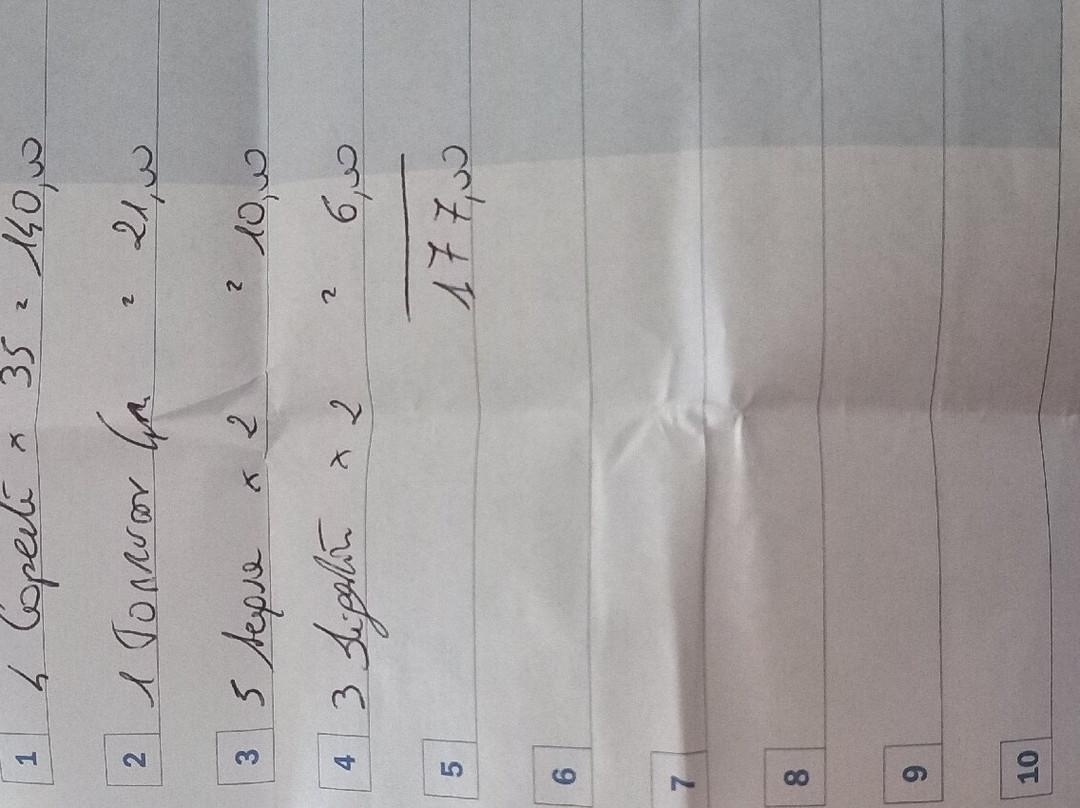 1 4 Coperti x 35 = 140,00
2 1 = 21,00
3 5 x 2 = 10,00
4 3 x 2 = 6,00
5 177,00
6
7
8
9
10